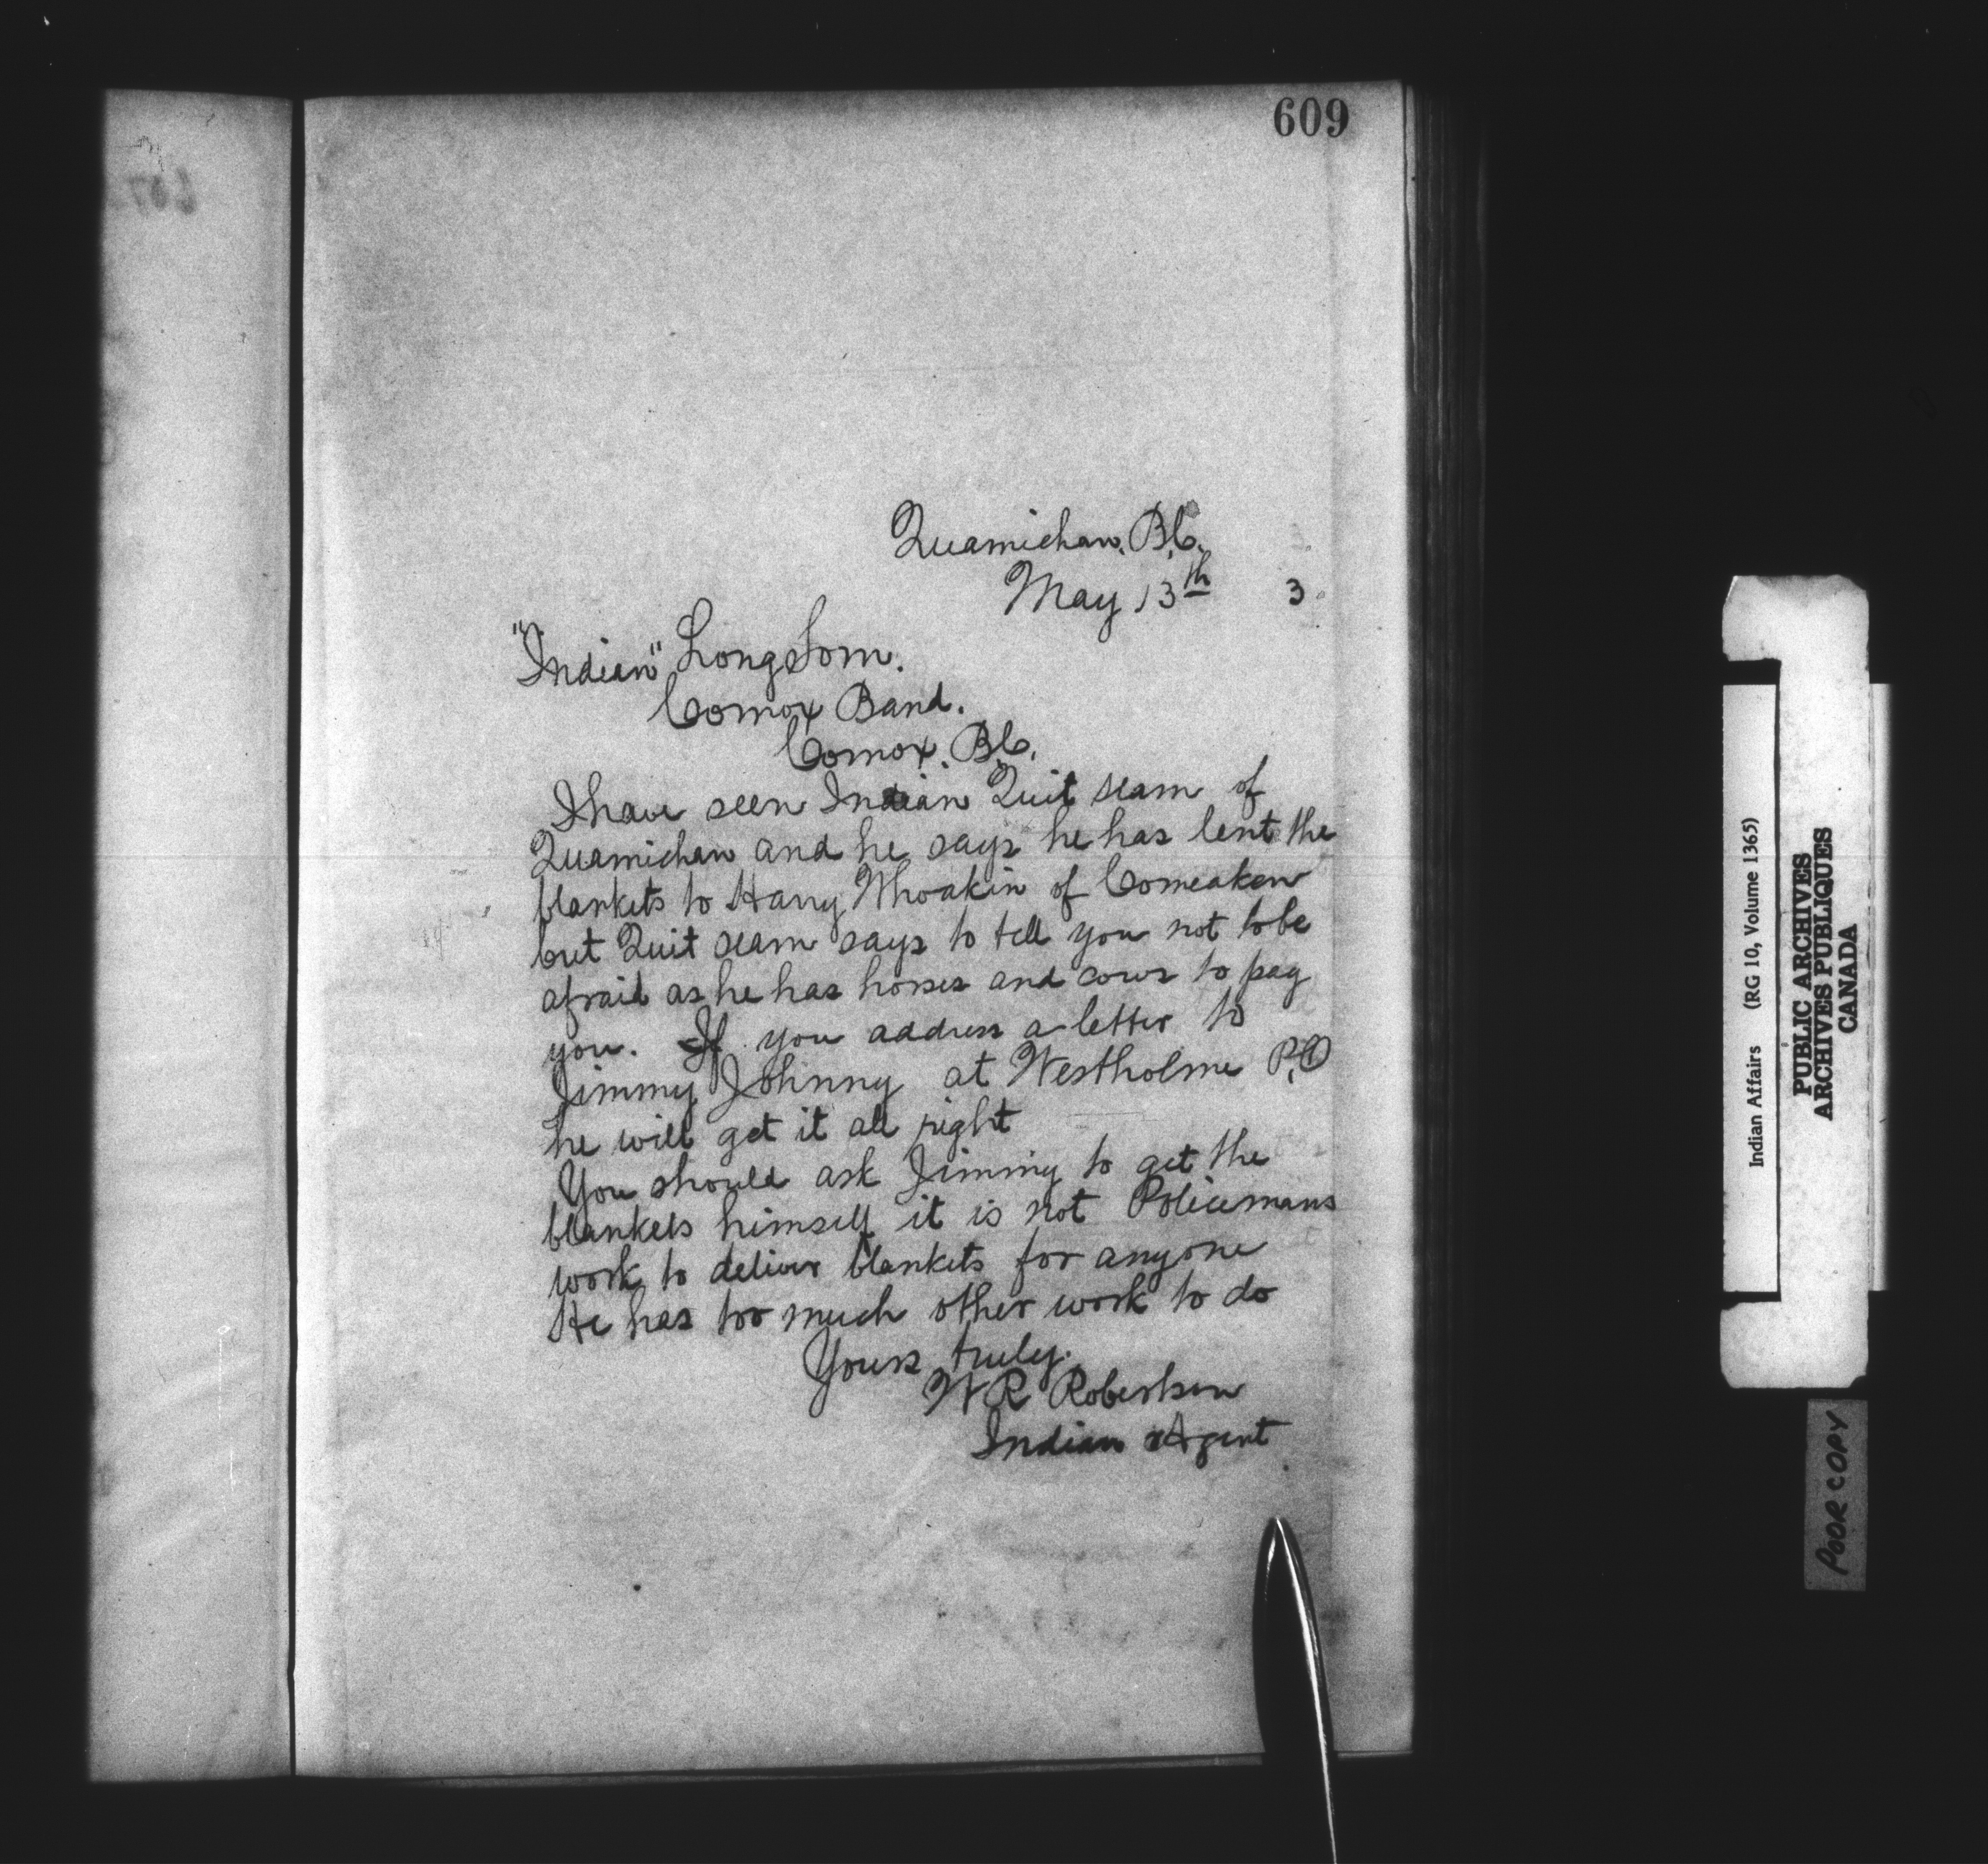 609
Quamichan, B.C.
May 13th 3
"Indian" Long Tom.
Comox Band.
Comox, B.C.
I have seen Indian Quit seam of
Quamichan and he says he has lent the
blankets to Harry of Comeaken
but Quit seam says to tell you not to be
afraid as he has horses and cows to pay
you. If you address a letter to
Jimmy Johnny at Westholme P.O
he will get it all right
You should ask Jimmy to get the
blankets himself it is not Policemans
work to deliver blankets for anyone
He has too much other work to do
Yours truly.
W R Robertson
Indian Agent
Indian Affairs (RG 10, Volume 1365)
PUBLIC ARCHIVES
ARCHIVES PUBLIQUES
CANADA
POOR COPY